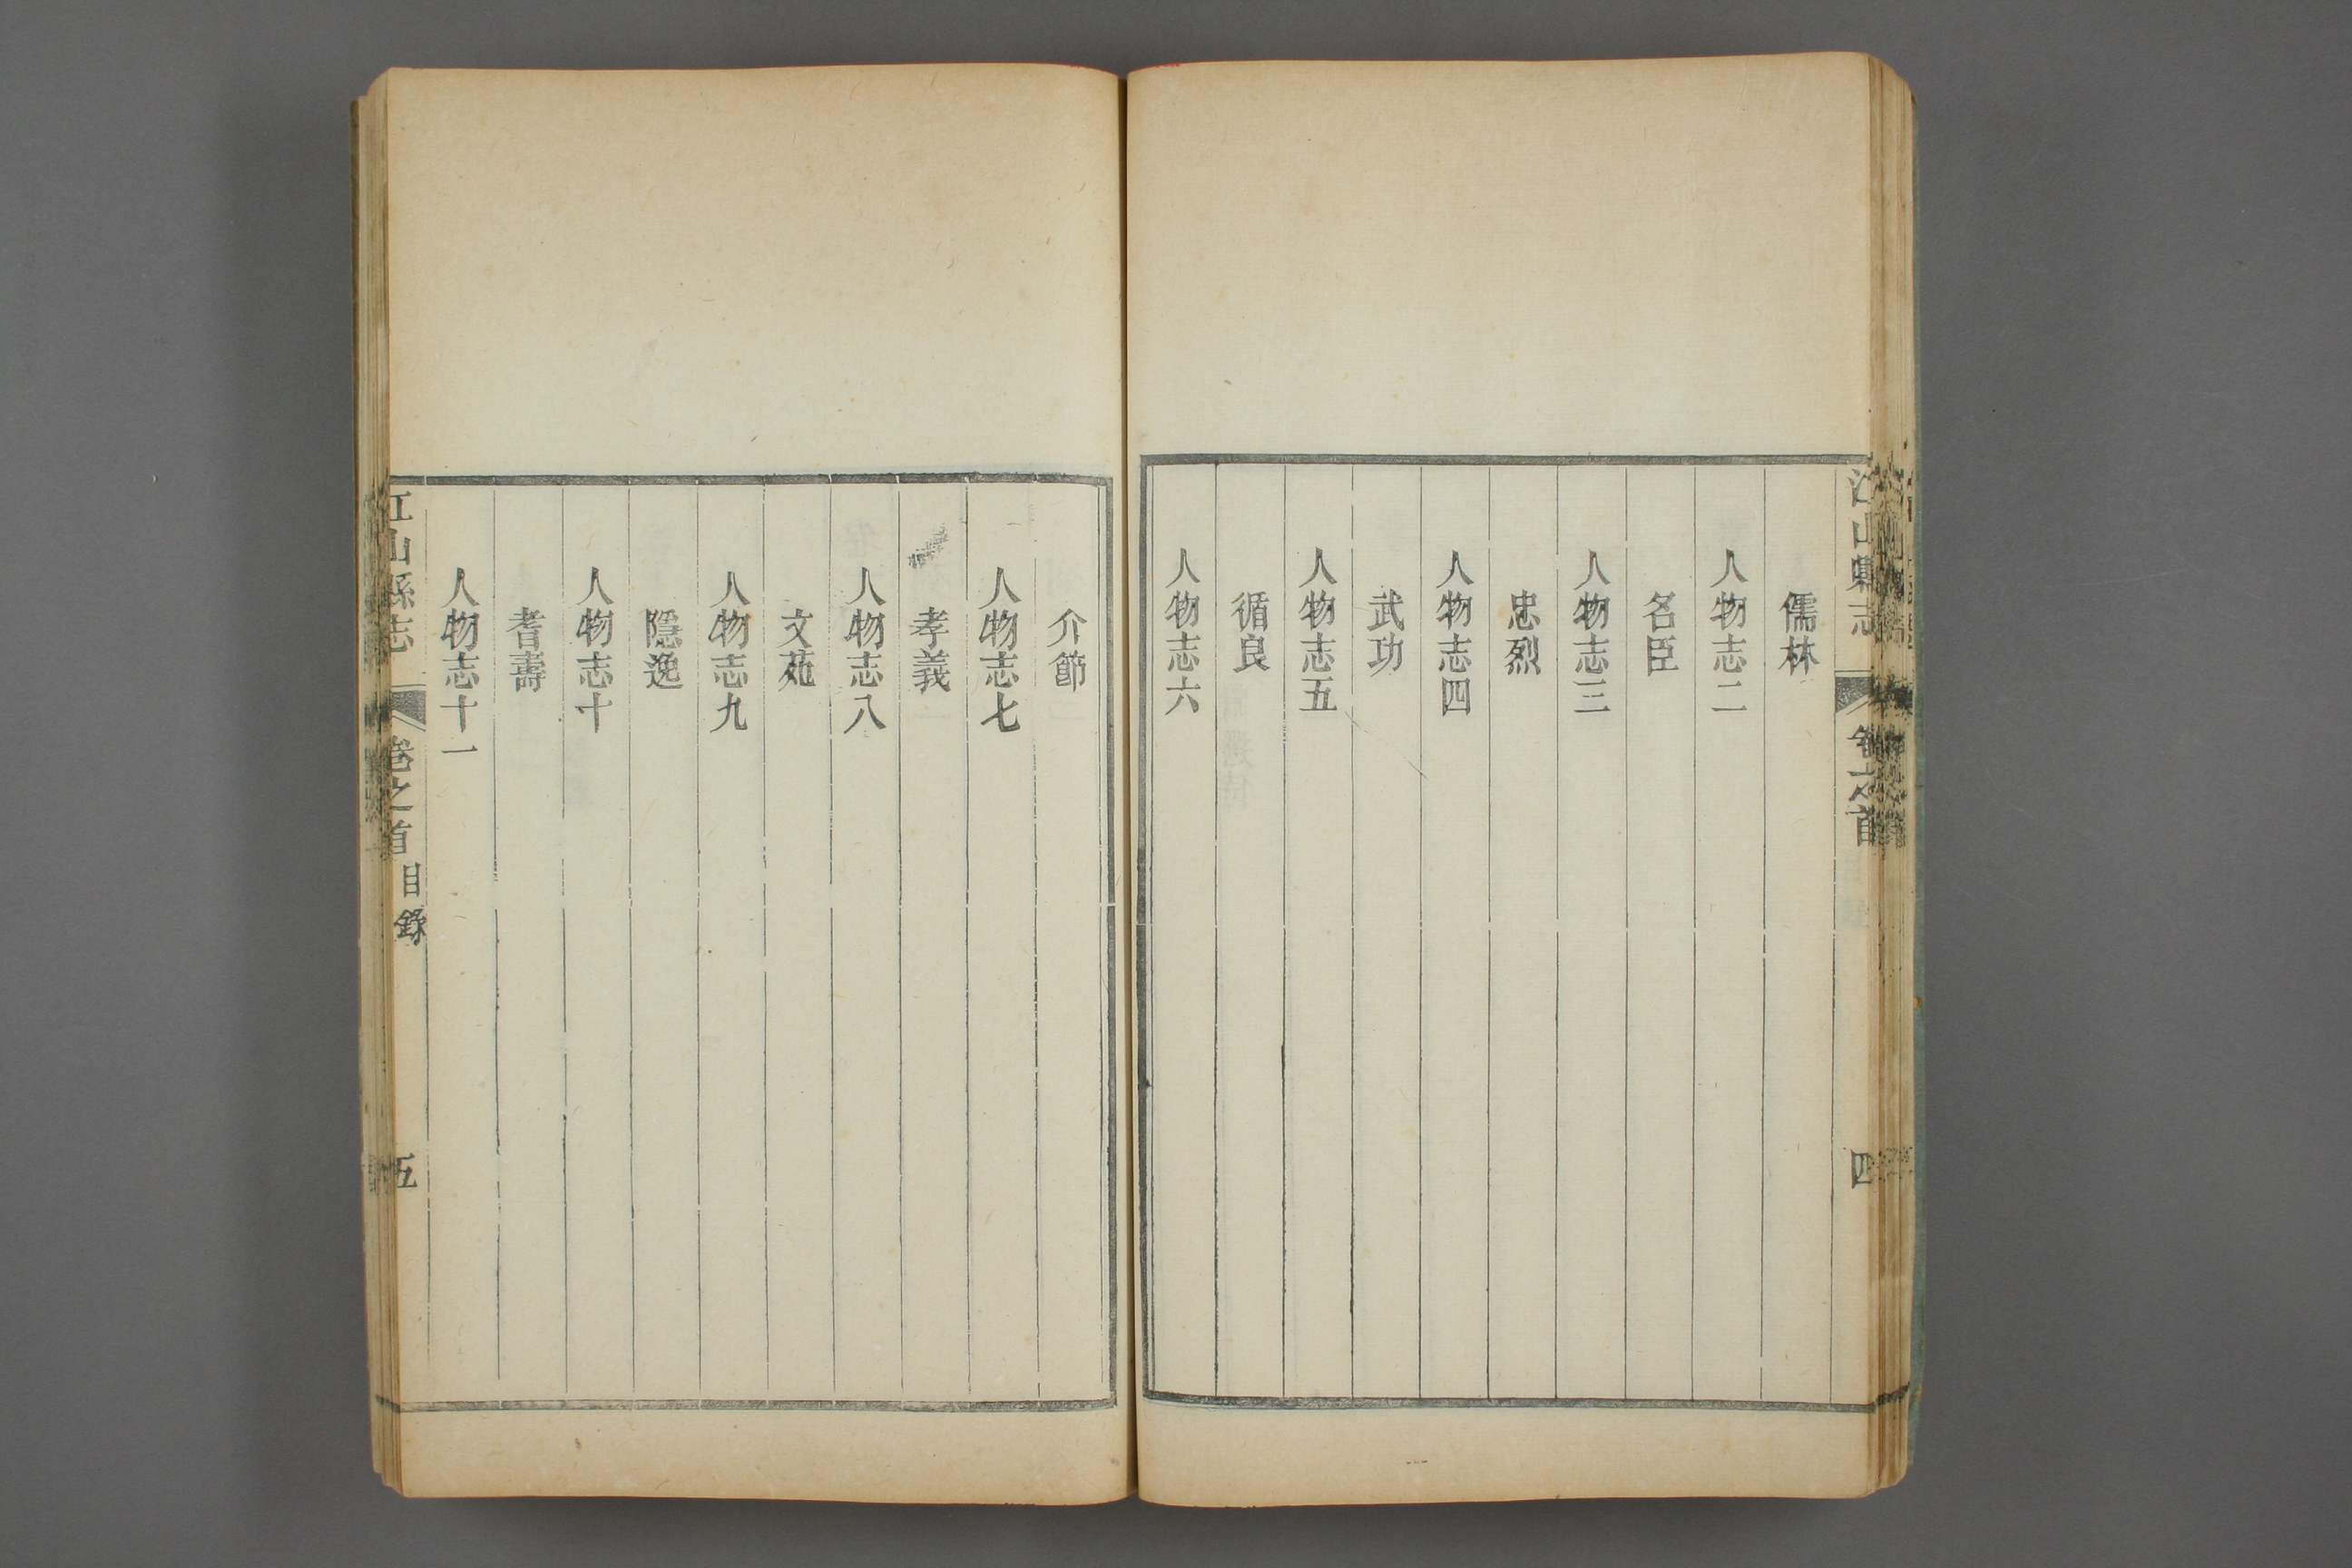 江山縣志
卷之首
四
儒林
人物志二
名臣
人物志三
忠烈
人物志四
武功
人物志五
循良
人物志六
介節
人物志七
孝義
人物志八
文苑
人物志九
隱逸
人物志十
耆壽
人物志十一
江山縣志
卷之首
目錄
五